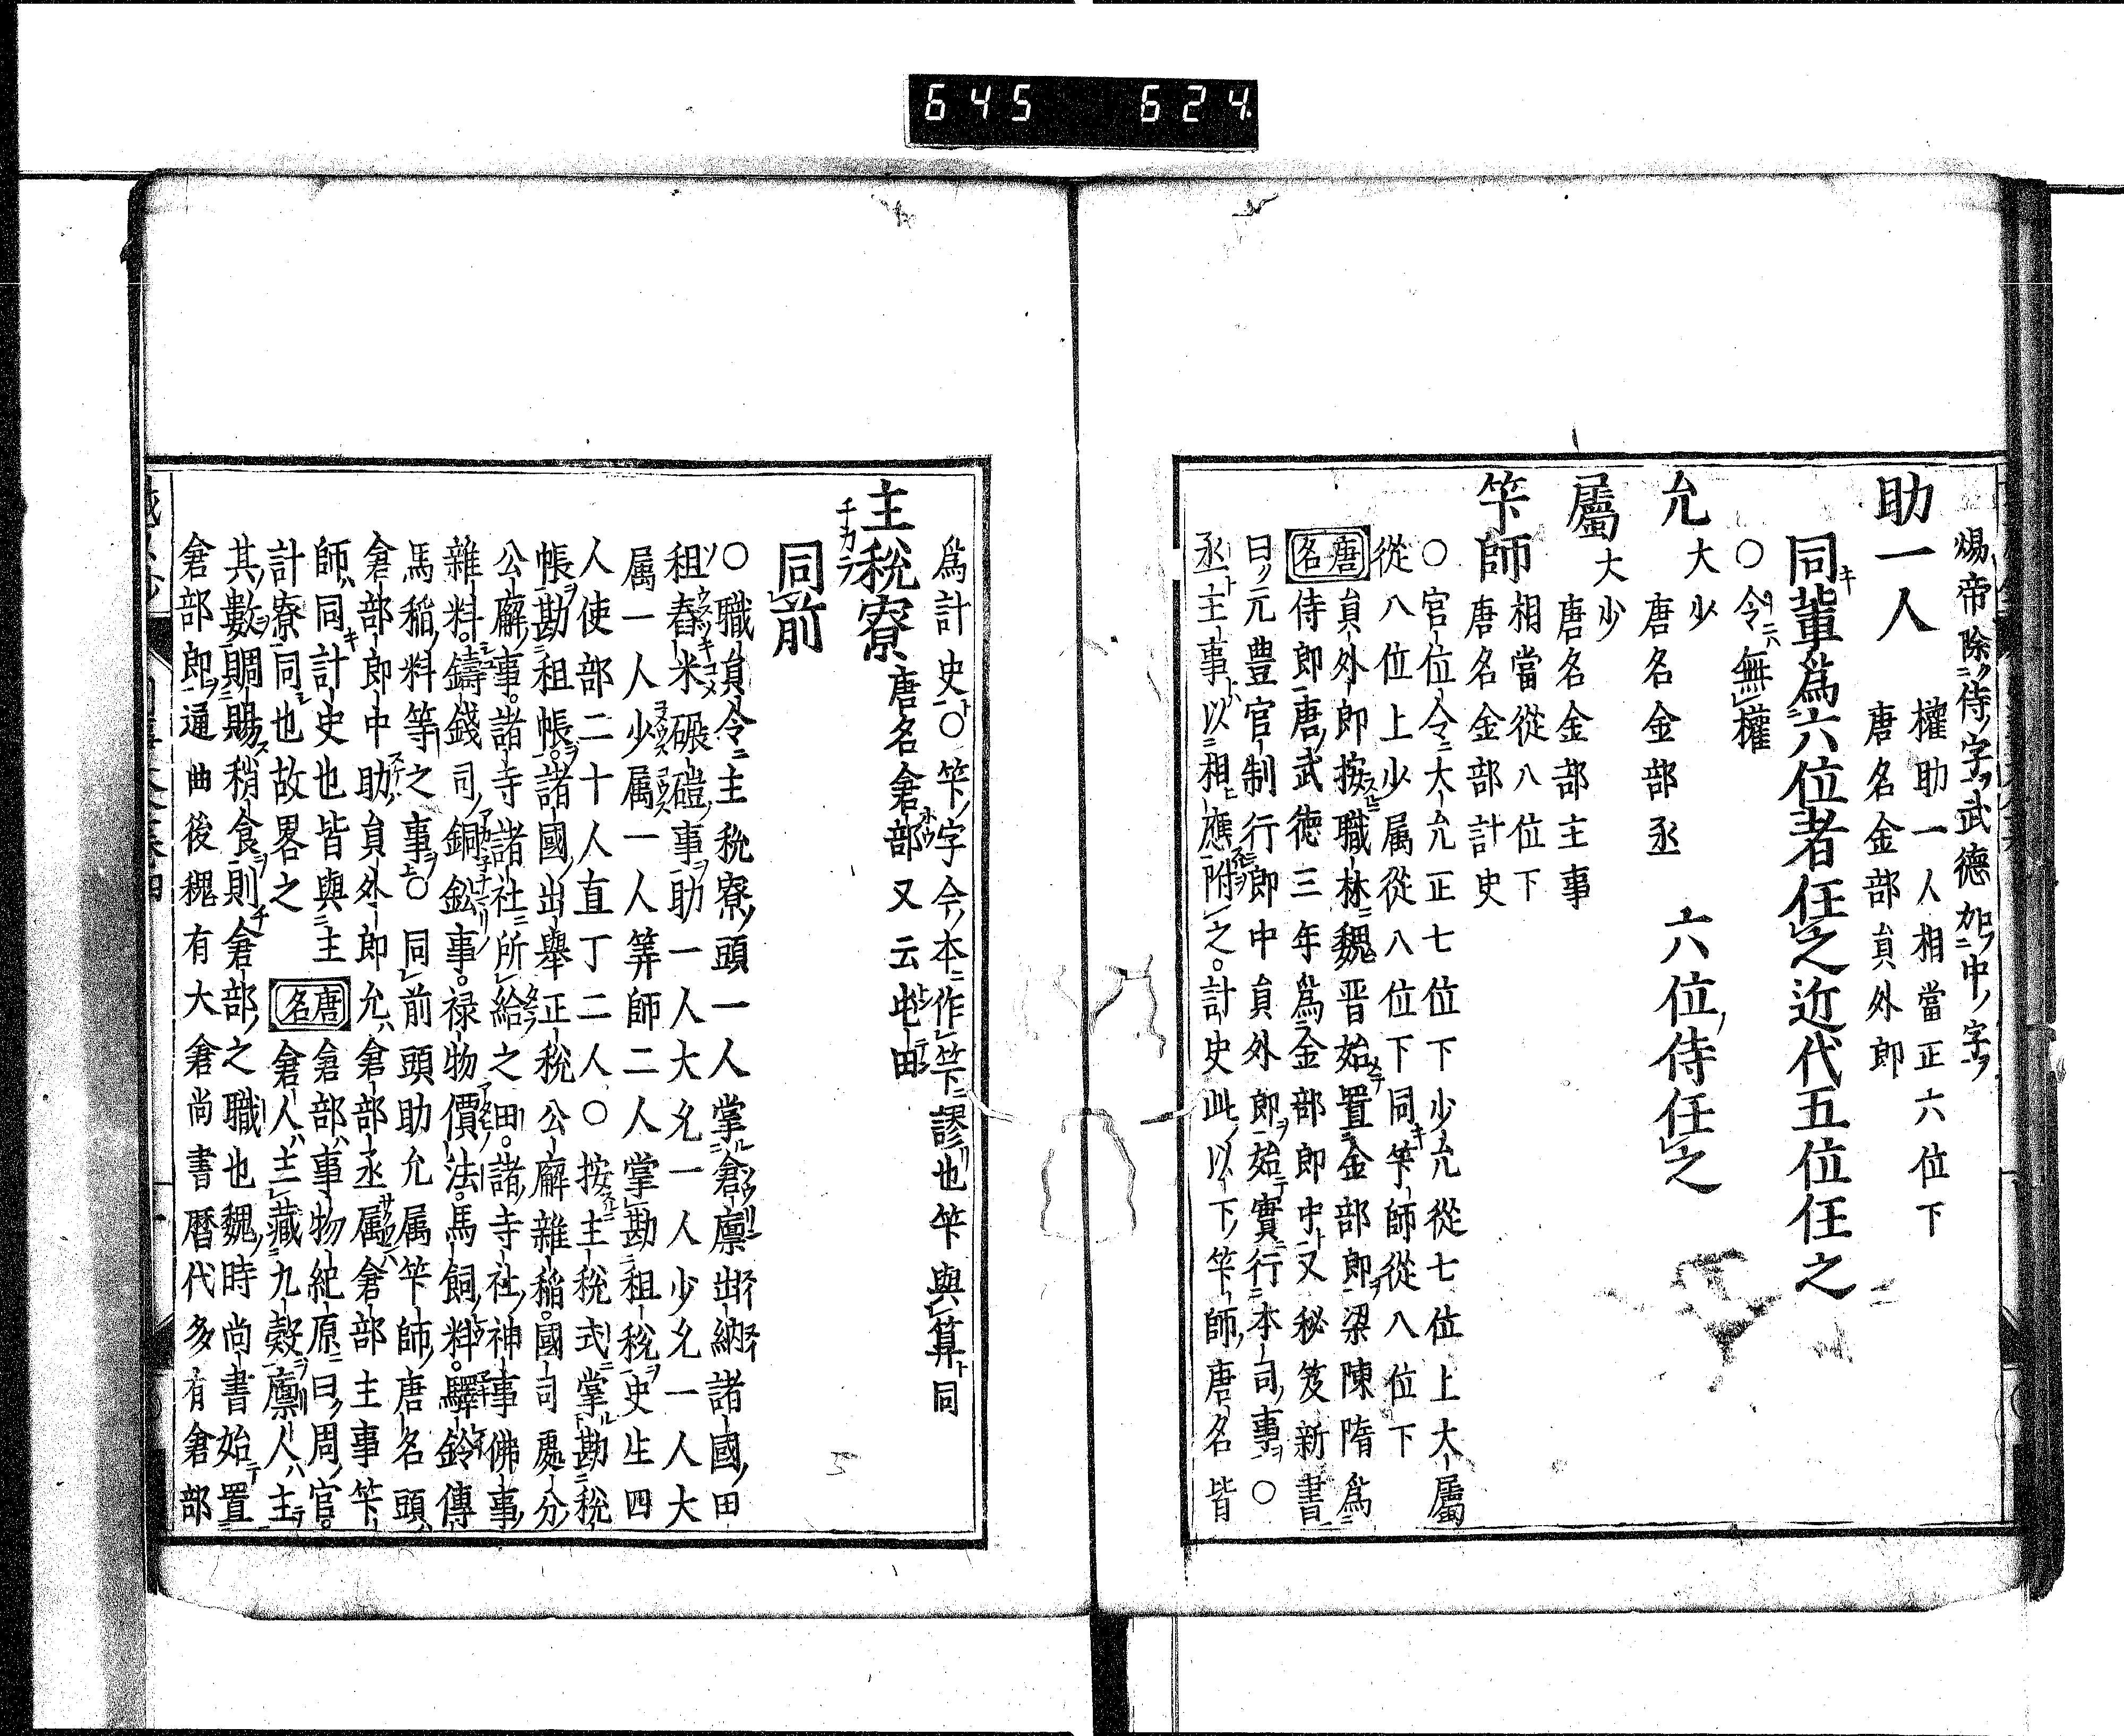 645 624.
煬帝除侍字武德加中字
助一人 權助一人相當正六位下
唐名金部員外郎
同輩爲六位者任之近代五位任之
○令無權
允 大少 唐名金部丞 六位侍任之
屬 大少 唐名金部主事
竿師 相當從八位下
唐名金部計史
○官位令大允正七位下少允從七位上大屬
從八位上少属從八位下同竿師從八位下
唐名 員外郎按職林魏晋始置金部郎梁陳隋爲
侍郎唐武徳三年爲金部郎中又秘笈新書
曰元豊官制行郎中員外郎始實行本司事○
丞主事以相應附之。計史此以下竿師唐名皆
爲計史○竿字令本作竺謬也竿與算同
主税寮 唐名倉部又云屯田
チカラ
同前
○職員令主税寮頭一人掌倉廩出納諸國田
租舂米碾磑事助一人大允一人少允一人大
属一人少属一人筭師二人掌勘租税史生四
人使部二十人直丁二人○按主税式掌勘税
帳勘租帳。諸國出舉正税公廨雜稲。國司處分
公廨事。諸寺諸社所給之田。諸寺社神事佛事
雜料。鑄錢司銅鈆事。禄物價法。馬飼料。驛鈴傳
馬稲料等之事○同前頭助允属竿師唐名頭
倉部郎中助員外郎允倉部丞属倉部主事竿
師同計史也皆與主
計寮同也故畧之
唐名 倉部事物紀原曰周官。
倉人主藏九穀廩人主
其數賙賜稍食則倉部之職也魏時尚書始置
倉部郎通曲後魏有大倉尚書暦代多有倉部